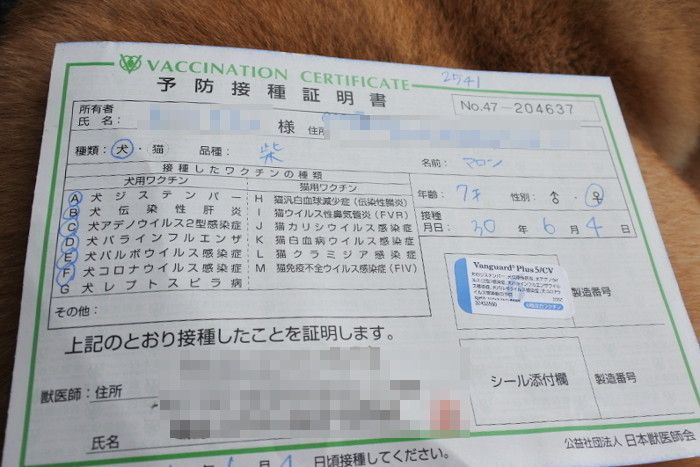 2541
VACCINATION CERTIFICATE
予防接種証明書
No.47-204637
所有者
氏名： 様 住所
種類：犬・猫 品種：柴 名前：マロン
接種したワクチンの種類
犬用ワクチン 猫用ワクチン
年齢：7才 性別：♂・♀
A 犬ジステンパー H 猫汎白血球減少症（伝染性腸炎）
B 犬伝染性肝炎 I 猫ウイルス性鼻気管炎（FVR）
C 犬アデノウイルス2型感染症 J 猫カリシウイルス感染症
D 犬パラインフルエンザ K 猫白血病ウイルス感染症
E 犬パルボウイルス感染症 L 猫クラミジア感染症
F 犬コロナウイルス感染症 M 猫免疫不全ウイルス感染症（FIV）
G 犬レプトスピラ病
接種
月日：30年6月4日
その他：
Vanguard® Plus 5/CV
製造番号
上記のとおり接種したことを証明します。
シール添付欄 製造番号
獣医師：住所
氏名
公益社団法人 日本獣医師会
月 日頃接種してください。